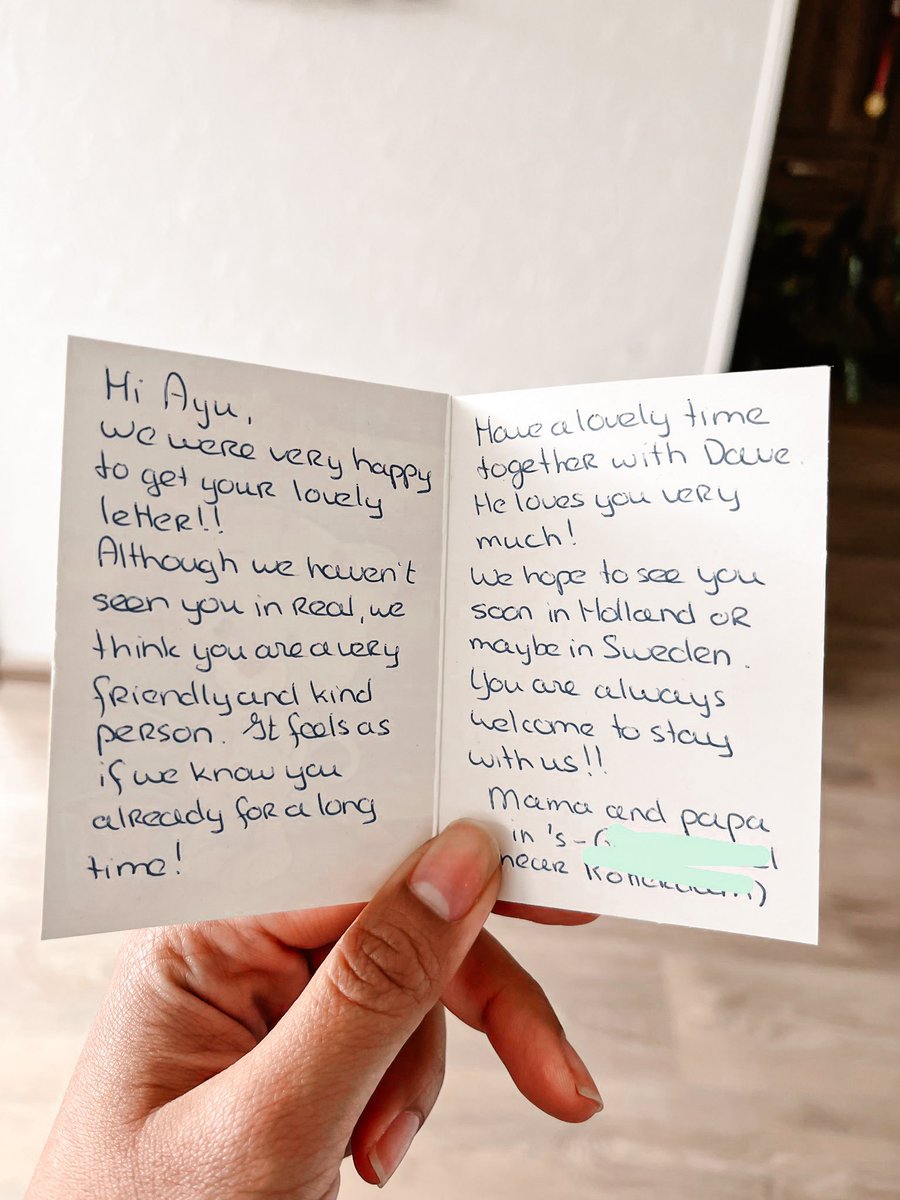 Hi Ayu,
We were very happy
to get your lovely
letter!!
Although we haven't
seen you in real, we
think you are a very
friendly and kind
person. It feels as
if we know you
already for a long
time!
Have a lovely time
together with Dave.
He loves you very
much!
We hope to see you
soon in Holland or
maybe in Sweden.
You are always
welcome to stay
with us!!
Mama and papa
in 's-
near